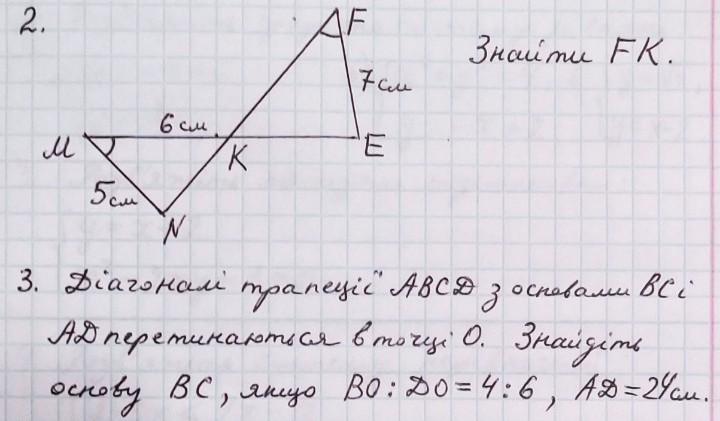 2.
F
Знайти FK.
7см
6см.
M
K
E
5см
N
3. Діагоналі трапеції ABCD з основами BC і
AD перетинаються в точці O. Знайдіть
основу BC, якщо BO : DO = 4 : 6, AD = 24см.